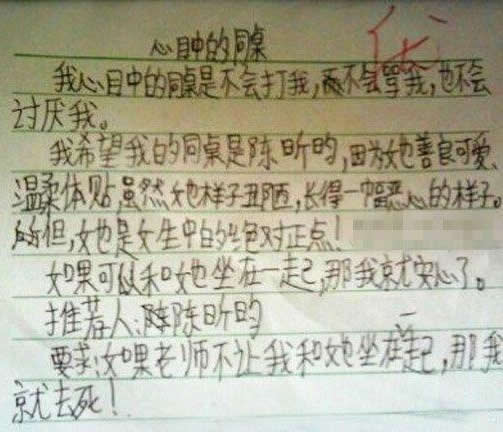 心目中的同桌
我心目中的同桌是不会打我，不会骂我，也不会
讨厌我。
我希望我的同桌是陈昕昀，因为她善良可爱、
温柔体贴，虽然她样子丑陋，长得一幅恶心的样子。
但，她是女生中的绝对正点！
如果可以和她坐在一起，那我就安心了。
推荐人：陈昕昀
要求：如果老师不让我和她坐在一起，那我
就去死！